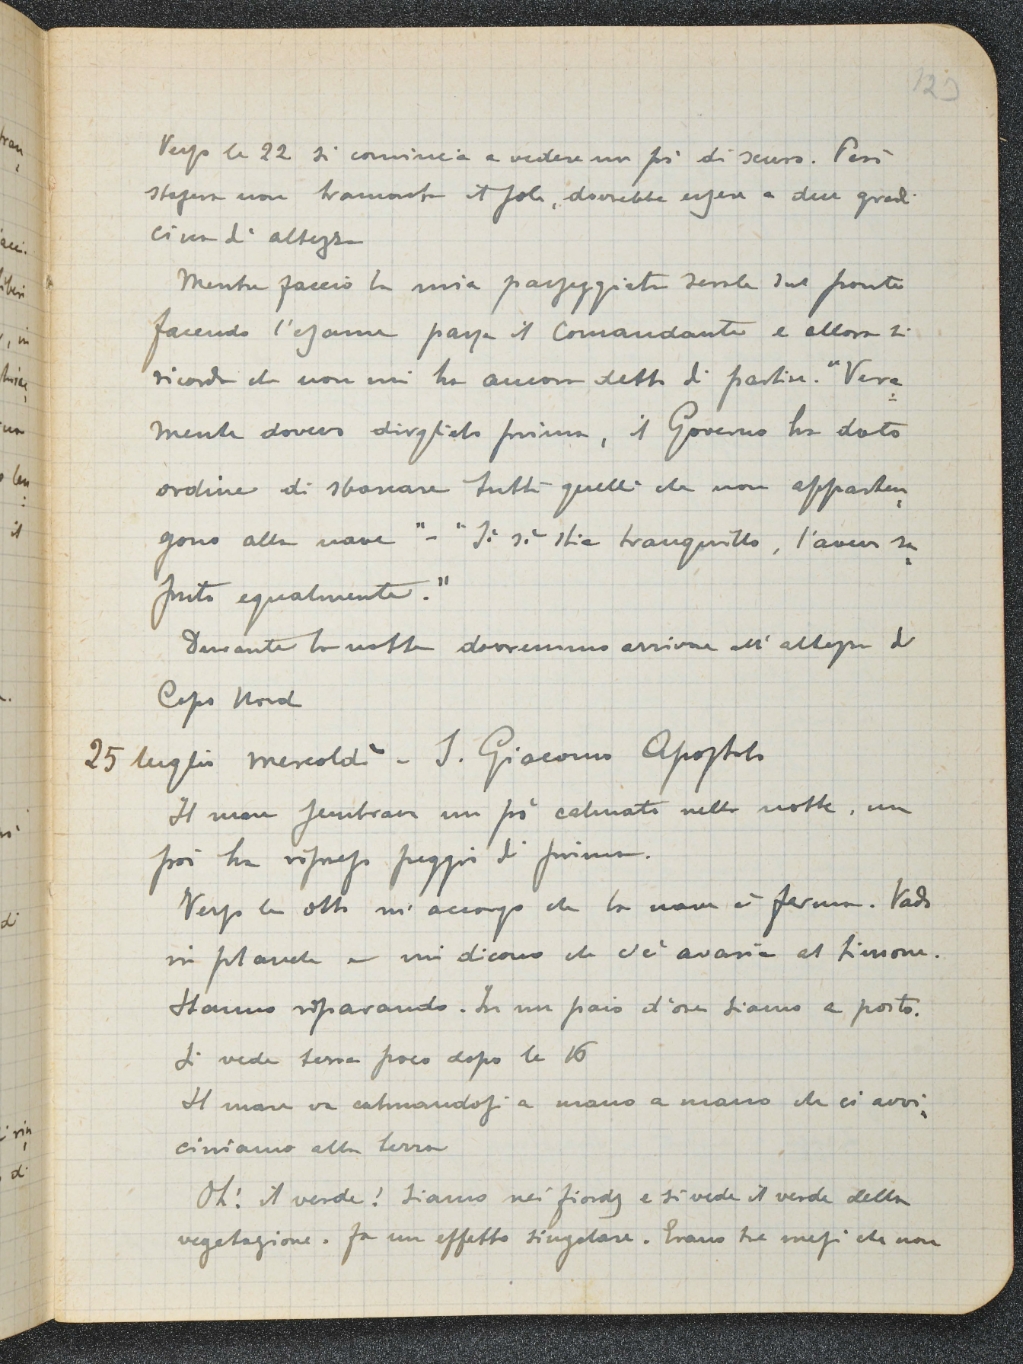 123
Verso le 22 si comincia a vedere un pò di scuro. Però
stasera non tramonta il sole, dovrebbe essere a due gradi
circa di altezza
Mentre faccio la mia passeggiata serale sul ponte
facendo l'esame passa il Comandante e allora si
ricorda che non mi ha ancora detto di partire. "Vera=
mente dovevo dirglielo prima, il Governo ha dato
ordine di sbarcare tutti quelli che non apparten=
gono alla nave" - "Sì sì stia tranquillo, l'avevo sa=
puto egualmente."
Durante la notte dovremmo arrivare all'altezza di
Capo Nord
25 luglio mercoldì - S. Giacomo Apostolo
Il mare sembrava un pò calmato nella notte, ma
poi ha ripreso peggio di prima.
Verso le otto mi accorgo che la nave è ferma. Vado
in plancia e mi dicono che c'è avaria al timone.
Stanno riparando. In un paio d'ore siamo a posto.
Si vede terra poco dopo le 16
Il mare va calmandosi a mano a mano che ci avvi=
ciniamo alla terra
Oh! il verde! Siamo nei fiordj e si vede il verde della
vegetazione. Fa un effetto singolare. Erano tre mesi che non